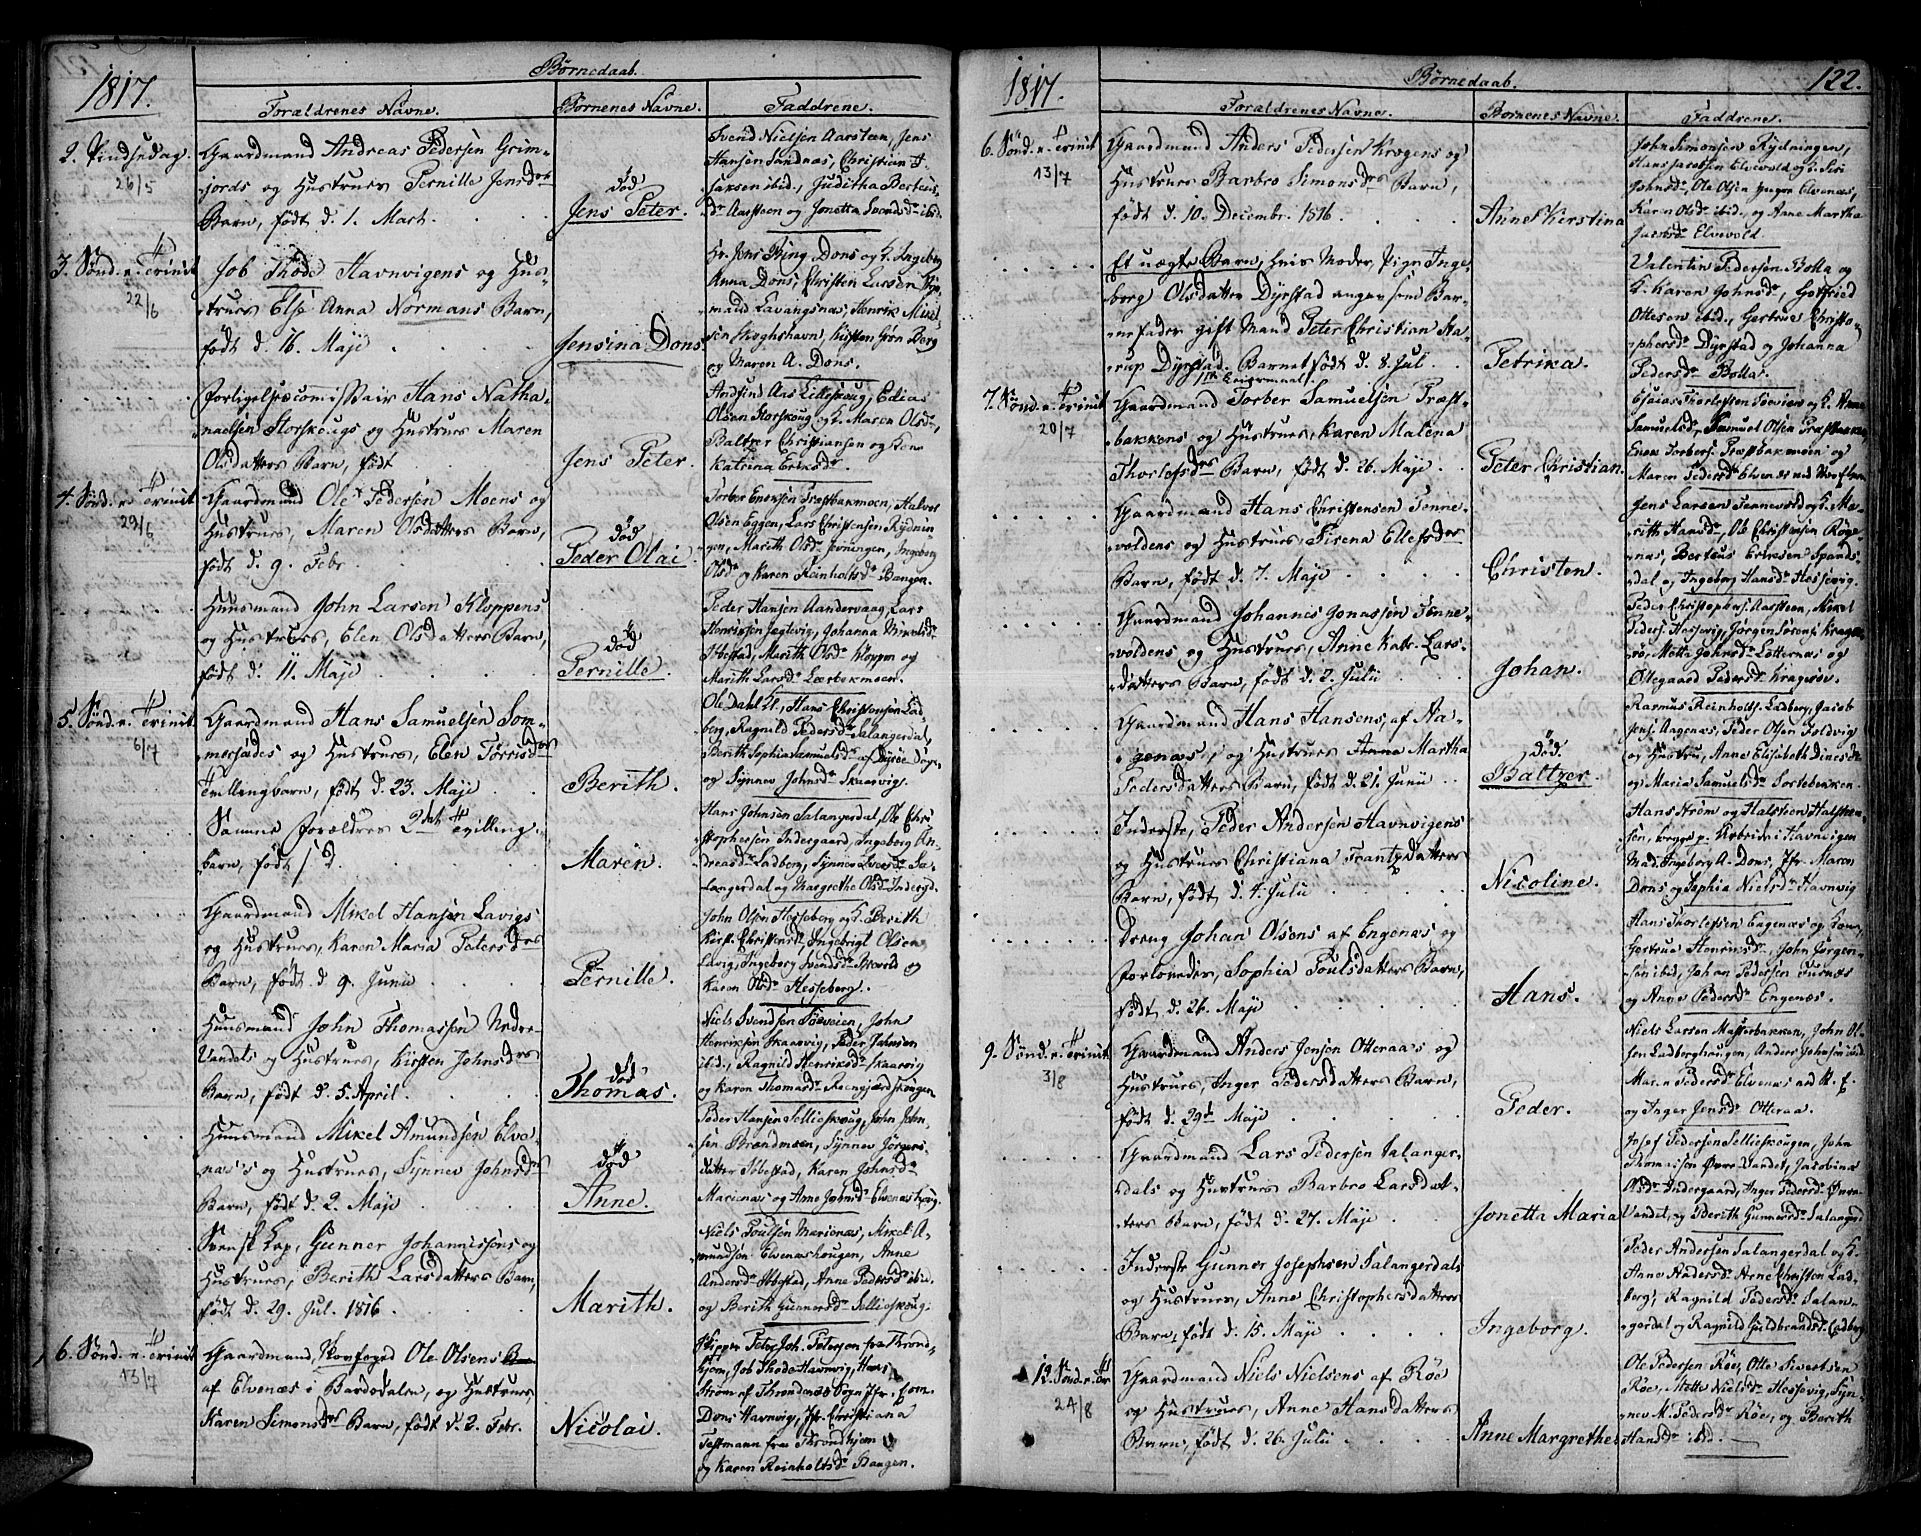 1817.
Børnedaab.
Forældrenes Navne.
Børnenes Navne.
Faddrene.
2. Pindsedag
26/5
Gaardmand Andreas Pedersen Grim-
jords og Hustrues Pernille Jensdatt
Barn, født d. 1. Mart.
død
Jens Peter.
Svend Nielsen Aarsteen, Jens
Hansen Sandnæs, Christian
ibid., Juditha Berteus-
dr Aarsteen og Jonetta Svendsdr ibid.
3. Sønd. e. Trinit
22/6
Job Thode Havnvigens og Hus-
trues Else Anna Normans Barn,
født d. 16. Maji
Jensina Dons
Hr. Jens Bing Dons og K. Ingeborg
Anna Dons, Christen Larsen
mand Lavangsnæs, Henrik Mikel-
sen Skoghshavn, Kirsten Grøn Berg
og Maren A. Dons.
Forligelsescommissair Hans Natha-
naelsen Storskougs og Hustrues Maren
Olsdatters Barn, født
Jens Peter.
Andfind Aas Lilleskoug, Edias
Olsen Storskoug og K. Maren Olsdr,
Baltzer Christiansen og Kone
Katrina Eriksdr.
4. Sønd. e. Trinit
29/6
Gaardmand Ole Pedersen Moens og
Hustrues, Maren Olsdatters Barn,
født d. 9. Febr.
død
Peder Olai
Torber Enoksen Præstbakmoen, Halvor
Olsen Eggen, Lars Christensen Rydnin-
gen, Marith Olsdr, Ingeborg
Olsdr og Karen Reinholtsdr Bangen.
Huusmand John Larsen Kloppens
og Hustrues, Elen Olsdatters Barn,
født d. 11. Maji
død
Pernille.
Peder Hansen Aandervaag, Lars
Henriksen Jegtevig, Johanna Mikelsdr
Ibestad, Marith Olsdr Kloppen og
Marith Larsdr Lærbekmoen.
5. Sønd. e. Trinit.
6/7
Gaardmand Hans Samuelsen Som-
mersædes og Hustrues, Elen Torrisdrs
Tvillingbarn, født d. 23. Maji
Berith.
Ole Dahl, Hans Christensen Lad-
berg, Ragnild Pedersdr Salangerdal,
Berith Sophia Samuelsdr af Dyrøe Sogn
og Synnev Johnsdr Skaarvig.
Samme Forældres 2det Tvilling-
barn, født
Maren.
Hans Johnsen Salangerdal, Ole Chri-
stophersen Indergaard, Ingeborg An-
dreasdr Ladberg, Synnev Iversdr Sa-
langerdal og Margrethe Olsdr Indergd.
Gaardmand Mikel Hansen Lavigs
og Hustrues, Karen Maria Petersdrs
Barn, født d. 9. Junii
Pernille.
John Olsen Hesseberg og K. Berith
Kirst. Christensdr, Ingebrigt Olsen
Lavig, Ingeborg Svendsdr og
Karen Olsdr Hesseberg.
Huusmand John Thomassen Nedre-
Vandets og Hustrues, Kirsten Johnsdrs
Barn, født d. 5. April.
død
Thomas.
Niels Svendsen Søeveien, John
Henriksen Skaarvig, Peder Johnsen
ibid., Ragnild Henriksdr Skaarvig
og Karen Thomasdr
Huusmand Mikel Amundsen Elve-
næs's og Hustrues, Synnev Johnsdrs
Barn, født d. 2. Maji
død
Anne.
Peder Hansen Sellieskoug, John John-
sen Brandmoen, Synnev Jørgens-
datter Ibestad, Karen Johnsdr
Marienæs og Anne Johnsdr Elvenæshoug.
Svensk Lap, Gunner Johannissens og
Hustrues, Berith Larsdatters Barn,
født d. 29. Jul. 1816.
Marith.
Niels Poulsen Marienæs, Mikel A-
mundsen Elvenæshougen, Anne
Andersdr Ibestad, Anne Pedersdr ibid.
og Berith Gunnersdr Sellieskoug.
6. Sønd. e. Trinit
13/7
Gaardmand, Skovfoged Ole Olsens
af Elvenæs i Bardodalen, og Hustrues,
Karen Simonsdrs Barn, født d. 2. Febr.
Nicolai.
Skipper Peter Joh. Petersen fra Thrond-
hjem, Job Thode Havnvig, Hans
Strøm af Throndenæs Sogn, Jfr. Em.
Dons Havnvig, Jfr. Christiana
Testmann fra Throndhjem
og Karen Reinholtsdr Bangen.
1817.
Børnedaab.
122.
Forældrenes Navne.
Børnenes Navne.
Faddrene.
6. Sønd. e. Trinit
13/7
Gaardmand Anders Pedersen Krogens og
Hustrues Barbro Simonsdrs Barn,
født d. 10. Decembr. 1816.
Anne Kirstina
John Simonsen Rydningen,
Hans Jacobsen Elvevold og K. Siri
Johnsdr, Ole Olsen Yngre Elvenæs,
Karen Olsdr ibid., og Anne Martha
Jacobsdr Elvevold.
Et uægte Barn, hvis Moder, Pige Inge-
borg Olsdatter Dyrstad angav som Bar-
nefader gift Mand Peter Christian Sta-
rup Dyrstad. Barnet født d. 8. Jul.
Petrika.
Valentin Pedersen Bolla og
K. Karen Johnsdr, Gotfried
Ottesen ibid., Gertrue Christo-
phersdr Dyrstad og Johanna
Pedersdr Bolla.
7. Sønd. e. Trinit
20/7
Gaardmand Torber Samuelsen Præst-
bakkens og Hustrues, Karen Malena
Thorlefsdrs Barn, født d. 26. Maji
Peter Christian.
Esaias Thorlefsen Søeveien og K. Anne
Samuelsdr, Samuel Olsen Præstbakken,
Enok Torbers. Præstbakmoen og
Maren Pedersdr Elvenæs
Gaardmand Hans Christensen Tenne-
voldens og Hustrues, Sirena Ellefsdrs
Barn, født d. 7. Maji
Christen.
Jens Larsen Tennevold og K. Ma-
rith Hansdr, Ole Christensen Røge-
næs, Berteus Eriksen Spands-
dal og Ingeborg Hansdr Hessevig.
Gaardmand Johannes Jonassen Tenne-
voldens og Hustrues, Anne Katr. Lars-
datters Barn, født d. 2. Julii
Johan.
Peder Christophers. Aarsteen, Mikel
Peders. Hessevig, Jørgen Sørens. Krage-
røe, Metta Johnsdr Lotternæs og
Øllegaard Pedersdr Kragerøe.
Gaardmand Hans Hansens, af Aa-
genæs, og Hustrues Anne Martha
Pedersdatters Barn, født d. 21. Junii
død.
Baltzer
Rasmus Reinholts. Ladberg, Jacob
Jens. Aagenæs, Peder Olsen Foldvig
og Hustru, Anne Elisabeth Dinesdr
og Maria Samuelsdr Sortebakken.
Inderste, Peder Andersen Havnvigens
og Hustrues Christiana Frantzdatters
Barn, født d. 4. Julii
Nicoline.
Hans Strøm og Halsteen Halsteen-
sen, begge p. Arbeide i Havnvigen
Mad. Ingeborg A. Dons, Jfr. Maren
Dons og Sophia Nielsdr Havnvig
Dreng Johan Olsens af Engenæs og
Forlovedes, Sophia Poulsdatters Barn,
født d. 26. Maji
Hans.
Hans Thorlefsen Engenæs og Kone
Gertrue Henriksdr, John Jørgen-
sen ibid., Johan Pedersen Furnæs
og Anne Pedersdr Engenæs.
9. Sønd. e. Trinit
3/8
Gaardmand Anders Jensen Otteraa's og
Hustrues, Inger Pedersdatters Barn,
født d. 29de Maji
Peder.
Niels Larsen Massebakken, John Ol-
sen Ladberghaugen, Anders Johnsen ibid.
Maren Pedersdr Elvenæs
og Inger Jensdr Otteraa.
Gaardmand Lars Pedersen Salanger-
dals og Hustrues Barbro Larsdat-
ters Barn, født d. 27. Maji
Jonetta Maria
Josef Pedersen Sellieskougen, John
Thomassen Øvre Vandet, Jacobina
Olsdr Andergaard, Inger Pedersdr Øvre-
Vandet, og Berith Gunnersdr Salangerd.
Inderste Gunner Josephsen Salangerdals
og Hustrues, Anne Christophersdatters
Barn, født d. 15. Maji
Ingeborg.
Peder Andersen Salangerdal og K.
Anne Andersdr, Arne Christen Lad-
berg, Ragnild Pedersdr Salan-
gerdal og Ragnild Guldbrandsd. Ladberg
12. Sønd. e. Tr
24/8
Gaardmand Niels Nielsens af Røe
og Hustrues, Anne Hansdatters
Barn, født d. 26. Julii
Anne Margrethe
Ole Pedersen Røe, Otte Sivertsen
Røe, Mette Nielsdr Hessevig, Syn-
nev M. Pedersdr Røe, og Berith
Hansdr ibid.